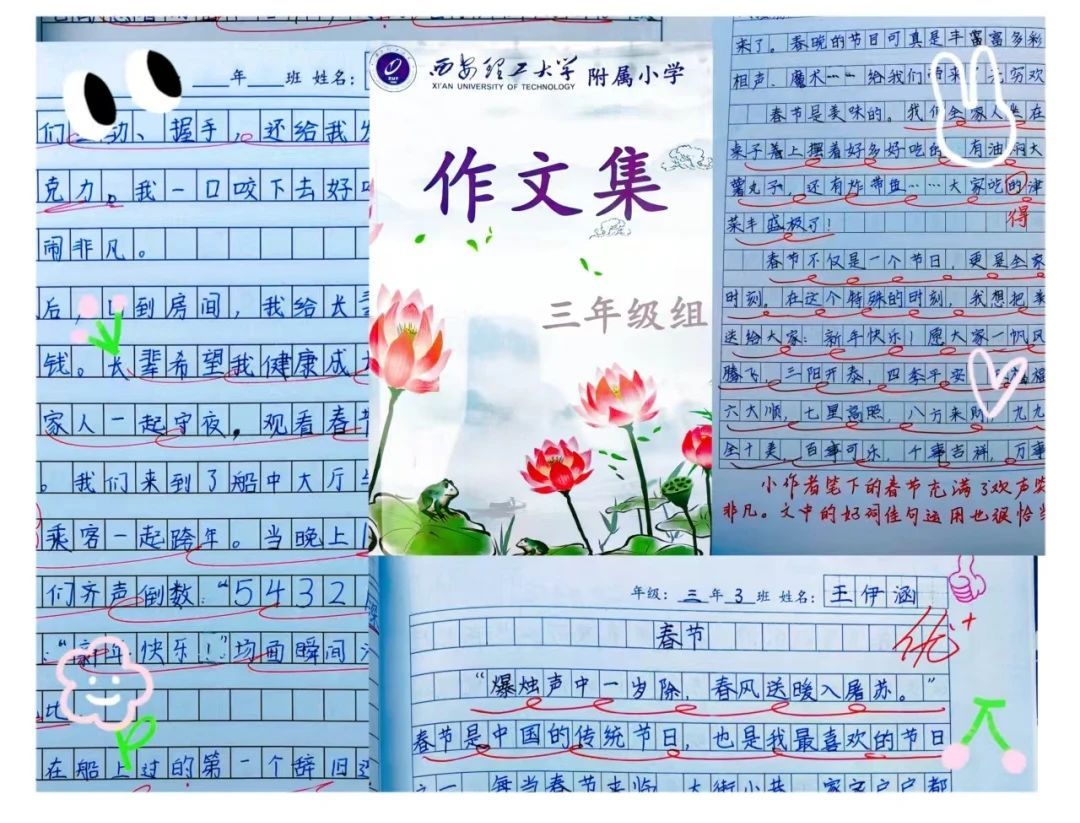 年 班 姓名:
们 动、握手，还给我
克力。我一口咬下去好
闹非凡。
后， 到房间，我给长
钱。长辈希望我健康成
家人一起守夜，观看春节
。我们来到了船中大厅
乘客一起跨年。当晚上
们齐声倒数“5432
：“ 快乐！”场面瞬间
比
在船上过的第一个辞旧
西安理工大学 附属小学
XI'AN UNIVERSITY OF TECHNOLOGY
作文集
三年级组
来了。春晚的节目可真是丰富多彩
相声、魔术…… 给我们带来 无穷欢
春节是美味的。我们全家人坐在
桌子上摆着好多好吃的 有油焖大
薯丸子，还有炸带鱼……大家吃的津
得
菜丰盛极了！
春节不仅是一个节日，更是全家
时刻。在这个特殊的时刻，我想把美
送给大家：新年快乐！愿大家一帆风
腾飞，三阳开泰，四季平安， 福
六大顺，七星高照，八方来财，九九
全十美，百事可乐，千事吉祥，万事
小作者笔下的春节充满了欢声笑
非凡。文中的好词佳句运用也很恰当
年级：三年3班 姓名：王伊涵
优+
春节
“爆烛声中一岁除，春风送暖入屠苏。”
春节是中国的传统节日，也是我最喜欢的节日
之一。每当春节来临，大街小巷，家家户户都